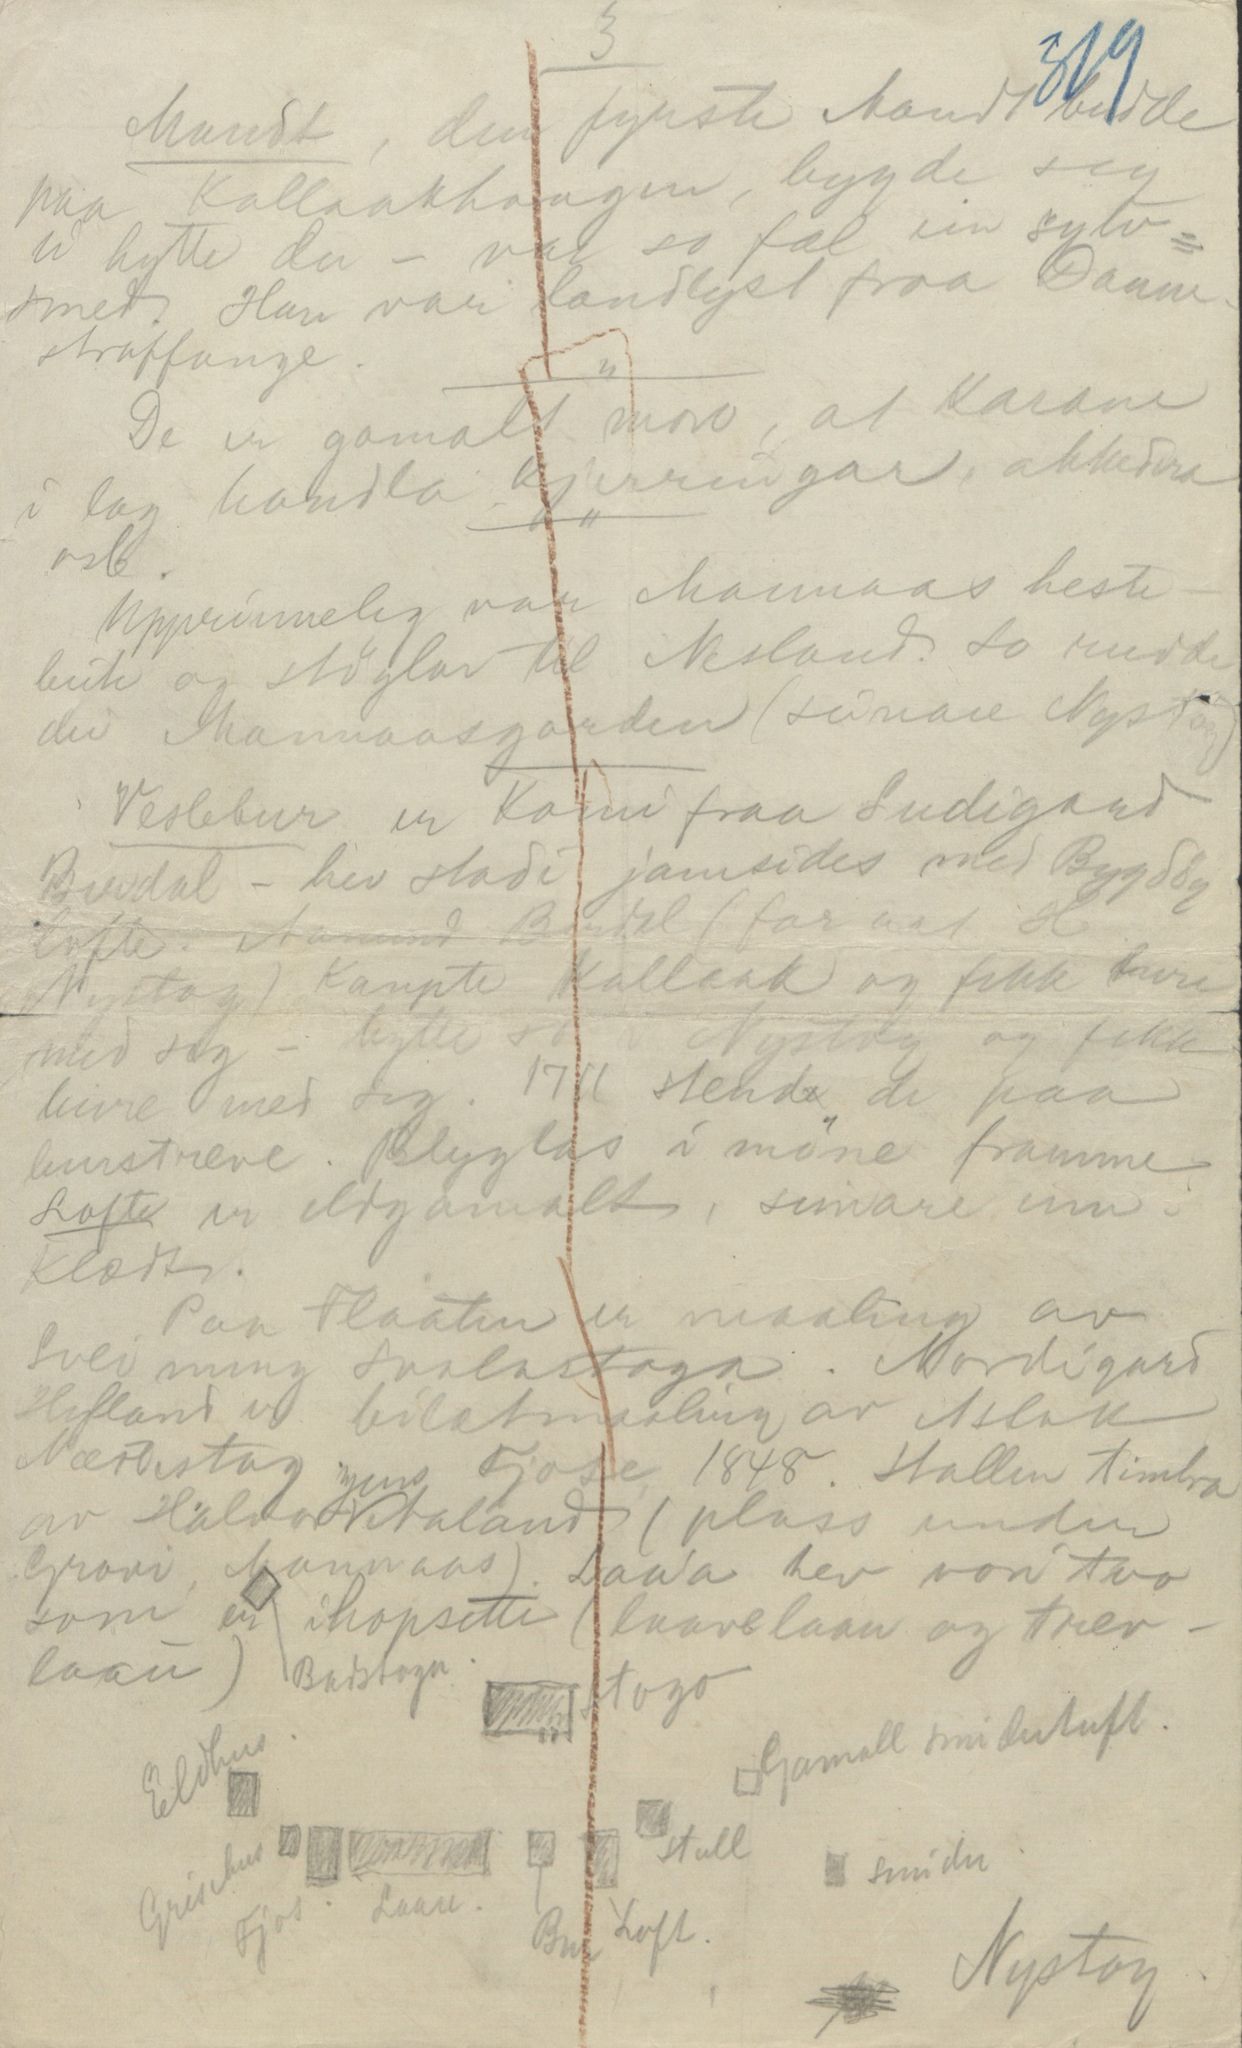 3
319
Mandt, den fyrste Mandt budde
paa Kallaakhaugen, bygde seg
ei hytte der - var so fæl ein sylv=
smed. Han var landlyst fraa Danm.
straffange.
"
De er gamalt mox, at Karane
i lag handla kjerringar, akkedera
osb.
"
Upprinneleg var Mannaas heste-
beite og stöylar til Nesland. So rudde
dei Mannaasgarden (seinare Nystog)
Veslebur er komi fraa Sudigard
Burdal - hev stadi jamsides med Bygdöy
loftet. Aamund Burdal (far aat H
Nystog) Kaupte Kallaak og fekk bure
med seg - bytte so i Nystog og fekk
bure med seg. 1711 stend de paa
burstreve. Blyglas i möne framme
Lofte er eldgamalt, seinare um-
Klædt.
Paa Flaaten er maaling av
Sveinung Svalastoga. Nordigard
Hefland er bilætmaaling av Aslak
Nærestog yngre Fjose 1848. Stallen timbra
av Halvor Nitaland (plass under
Grovi, Mannaas). Laa'a hev vori two
som er ihopsette (laavelaan og trev-
laan)
Badstoga.
Stogo
Eldhus.
Gamall smidetuft.
Grisehus
Fjos.
Laan.
Stall
smidu
Bur
Loft.
Nystog